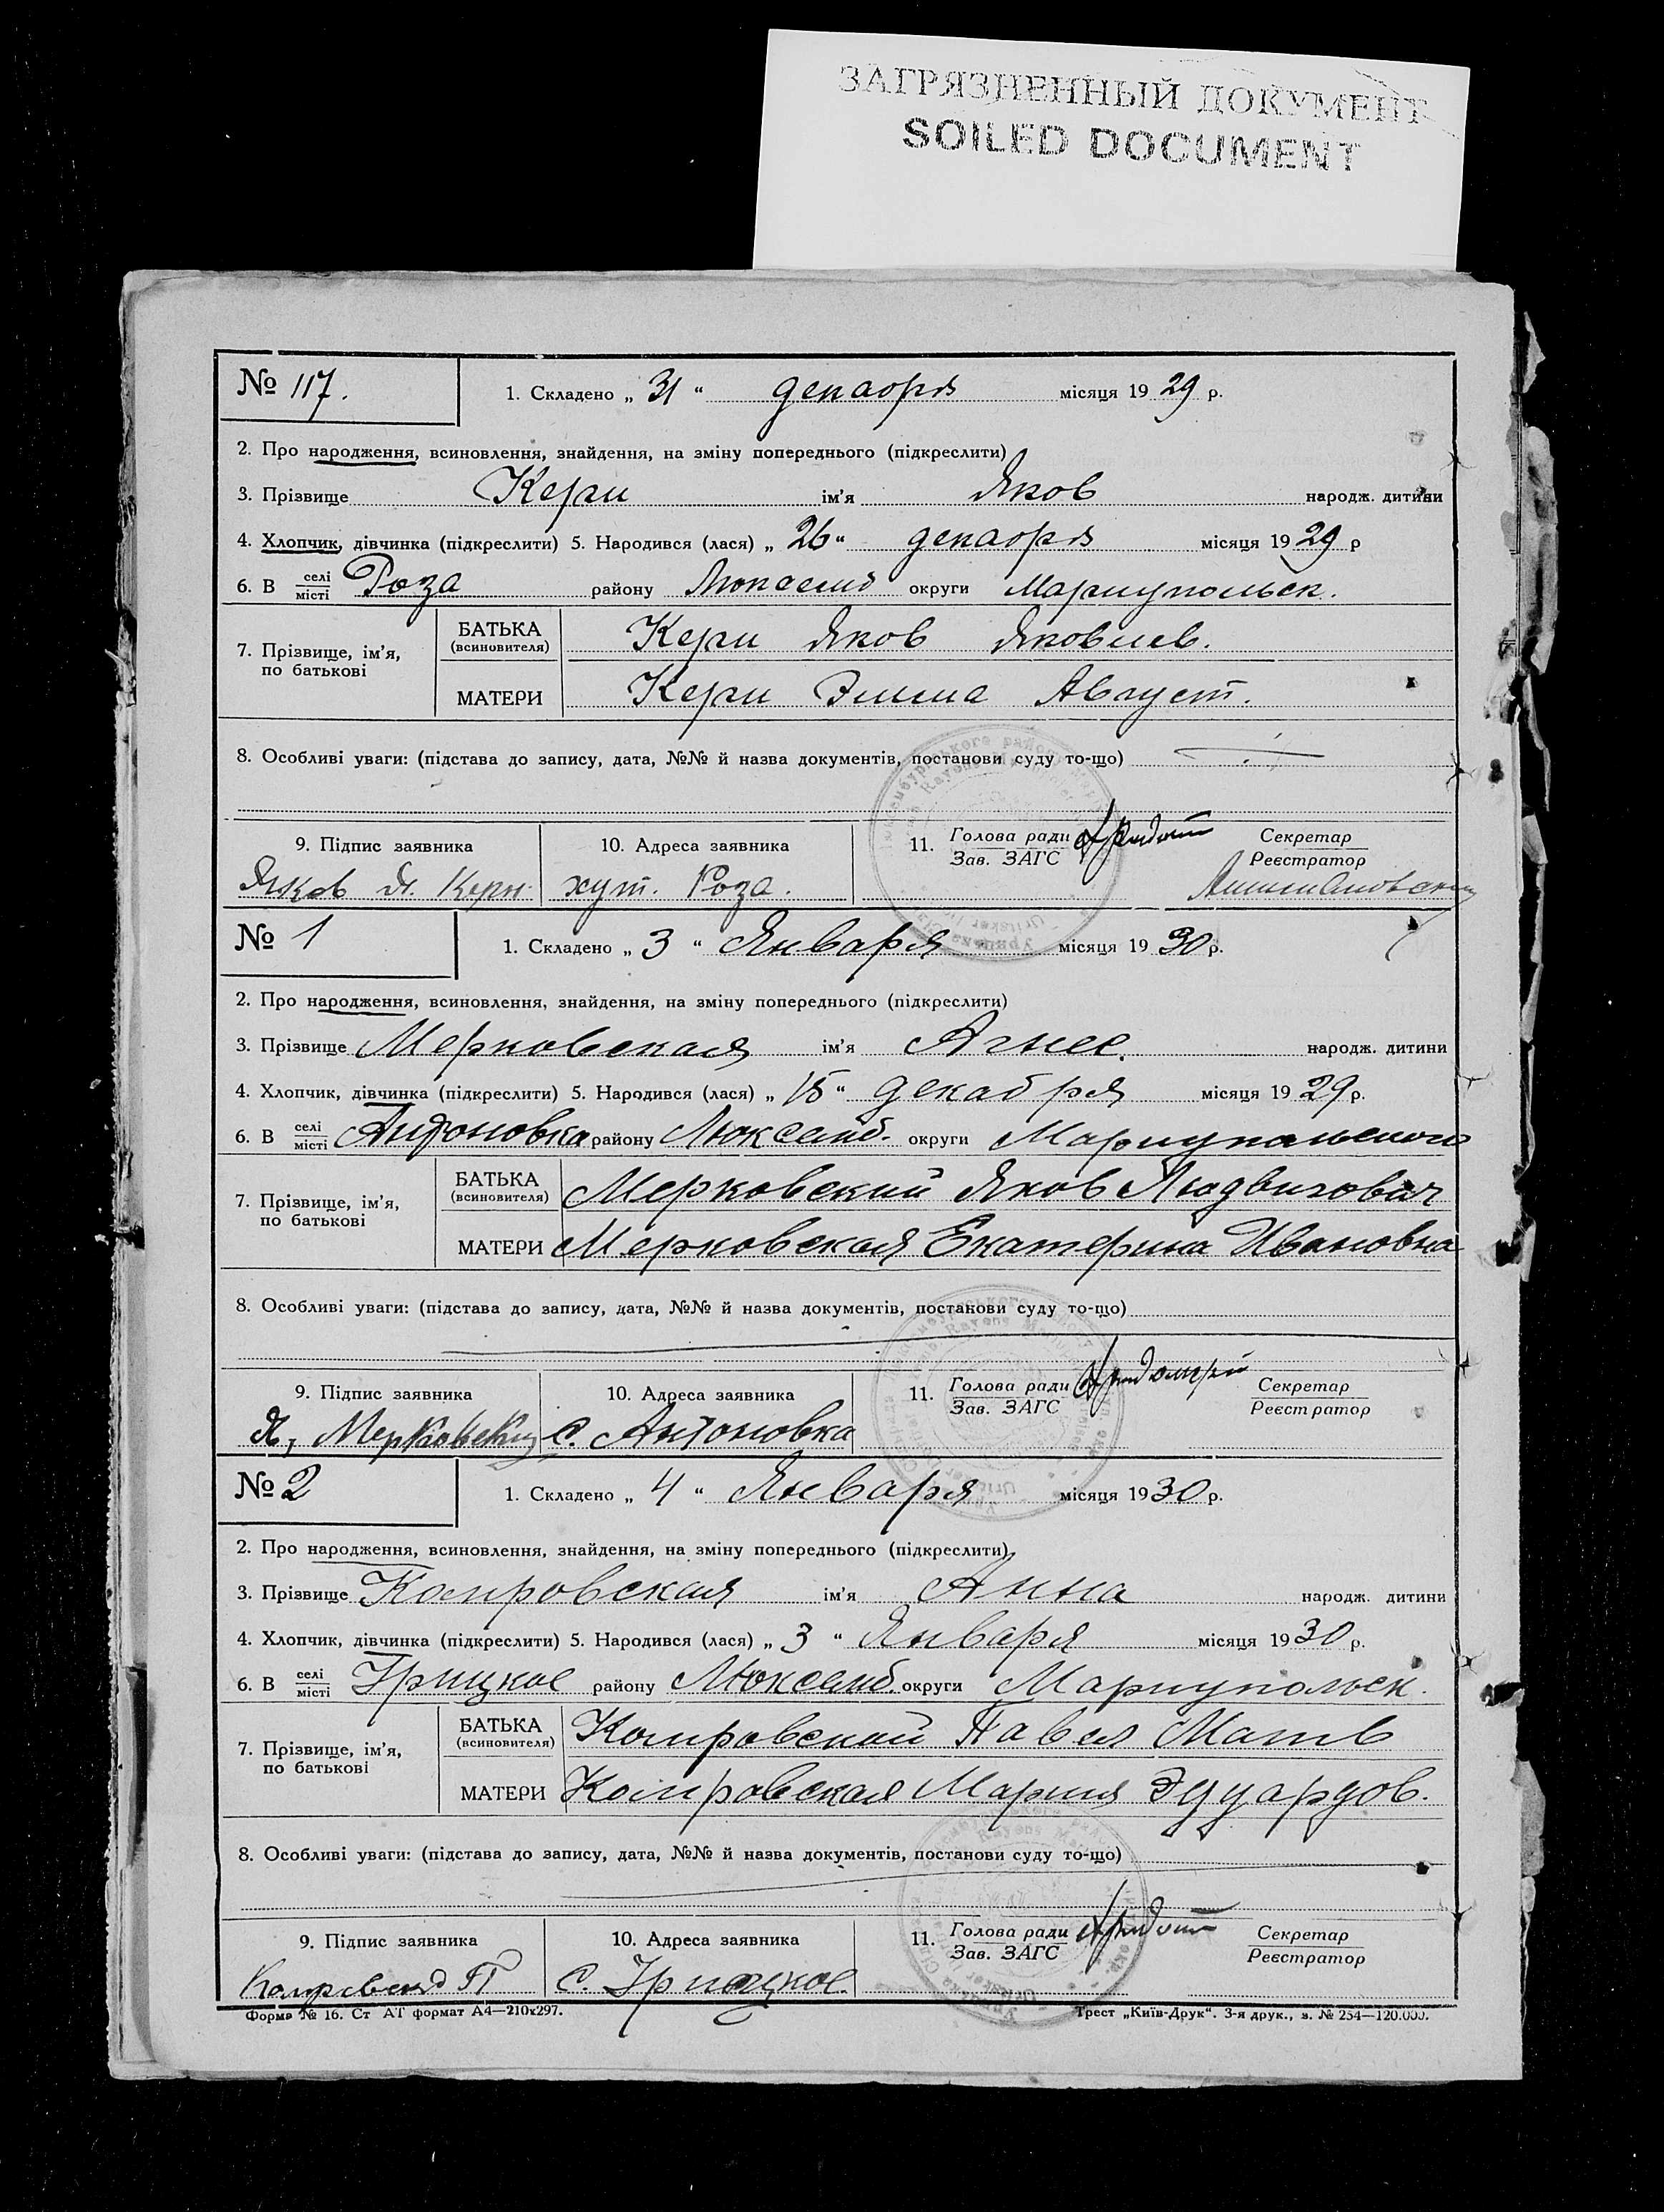 ЗАГРЯЗНЕННЫЙ ДОКУМЕНТ
SOILED DOCUMENT
№ 117. 1. Складено „ 31 “ декабря місяця 19 29 р.
2. Про народження, всиновлення, знайдення, на зміну попереднього (підкреслити)
3. Прізвище Керн ім'я Яков народж. дитини
4. Хлопчик, дівчинка (підкреслити) 5. Народився (лася) „ 26 “ декабря місяця 19 29 р
6. В селі місті Роза району Люксемб округи Мариупольск.
7. Прізвище, ім'я, по батькові
БАТЬКА (всиновителя) Керн Яков Яковлев.
МАТЕРИ Керн Эмма Август.
8. Особливі уваги: (підстава до запису, дата, №№ й назва документів, постанови суду то-що)
9. Підпис заявника 10. Адреса заявника 11. Голова ради Зав. ЗАГС Секретар Реєстратор
Яков Я. Керн хут. Роза.
№ 1 1. Складено „ 3 “ Января місяця 19 30 р.
2. Про народження, всиновлення, знайдення, на зміну попереднього (підкреслити)
3. Прізвище Мерковская ім'я Агнес. народж. дитини
4. Хлопчик, дівчинка (підкреслити) 5. Народився (лася) „ 15 “ декабря місяця 19 29 р.
6. В селі місті Антоновка району Люксемб. округи Мариупольского
7. Прізвище, ім'я, по батькові
БАТЬКА (всиновителя) Мерковский Яков Людвигович
МАТЕРИ Мерковская Екатерина Ивановна
8. Особливі уваги: (підстава до запису, дата, №№ й назва документів, постанови суду то-що)
9. Підпис заявника 10. Адреса заявника 11. Голова ради Зав. ЗАГС Секретар Реєстратор
Я, Мерковский с. Антоновка
№ 2 1. Складено „ 4 “ Января місяця 19 30 р.
2. Про народження, всиновлення, знайдення, на зміну попереднього (підкреслити)
3. Прізвище Компровская ім'я Анна народж. дитини
4. Хлопчик, дівчинка (підкреслити) 5. Народився (лася) „ 3 “ Января місяця 19 30 р.
6. В селі місті Урицкое району Люксемб. округи Мариупольск.
7. Прізвище, ім'я, по батькові
БАТЬКА (всиновителя) Компровский Павел Матв
МАТЕРИ Компровская Мария Эдуардов.
8. Особливі уваги: (підстава до запису, дата, №№ й назва документів, постанови суду то-що)
9. Підпис заявника 10. Адреса заявника 11. Голова ради Зав. ЗАГС Секретар Реєстратор
с. Урицкое.
Форма № 16. Ст АТ формат А4—210х297. Трест „Київ-Друк“. 3-я друк., з. № 254—120.000.